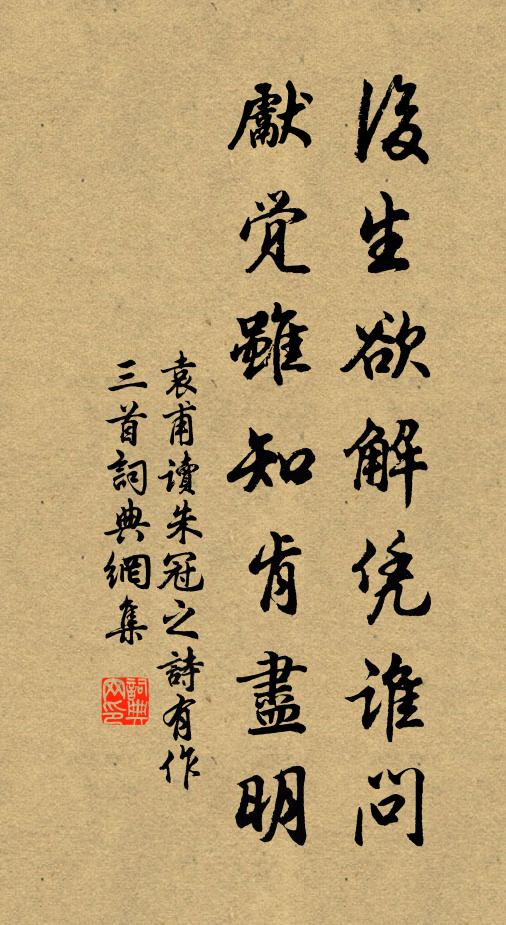 後生欲解凭谁問
獻覚雖知肯盡明
袁甫讀朱冠之詩有作
三首詞典網集
詞典
网印